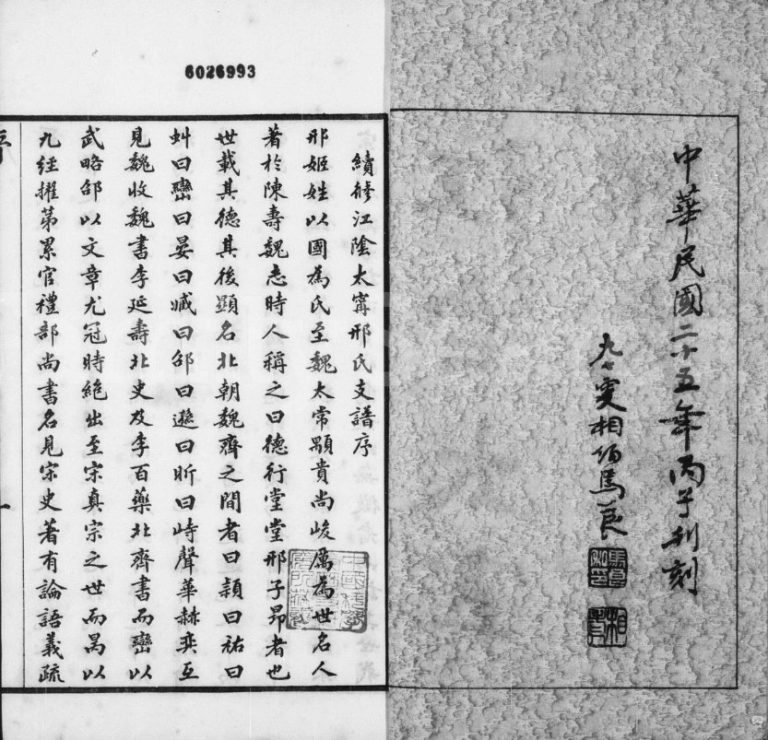 中華民國二十五年丙子刊刻
九七叟相伯馬良
6026993
續修江陰太寗邢氏支譜序
邢姬姓以國為氏至魏太常顒貴尚峻厲為世名人
著於陳壽魏志時人稱之曰德行堂堂邢子昂者也
世載其德其後顯名北朝魏齊之間者曰穎曰祐曰
虯曰巒曰晏曰臧曰邵曰遜曰昕曰峙聲華赫奕互
見魏收魏書李延壽北史及李百藥北齊書而巒以
武略邵以文章尤冠時絶出至宋真宗之世而昺以
九經擢第累官禮部尚書名見宋史著有論語義疏
序
一